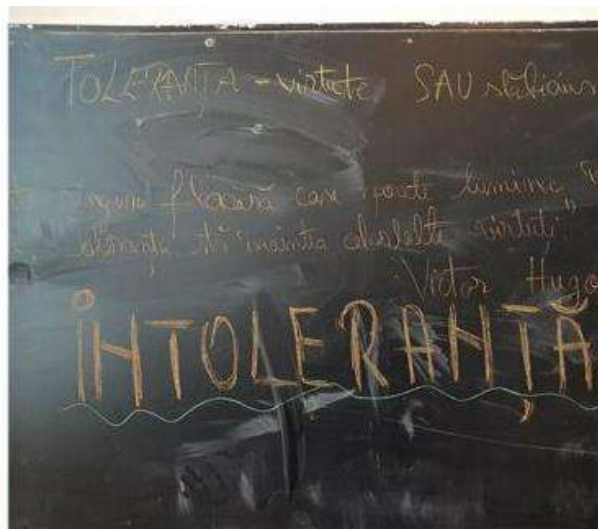 TOLERANȚA - virtute SAU slăbiciun
singura flacară care poate lumina
stă înaintea celorlalte virtuți"
Victor Hugo
INTOLERANȚĂ